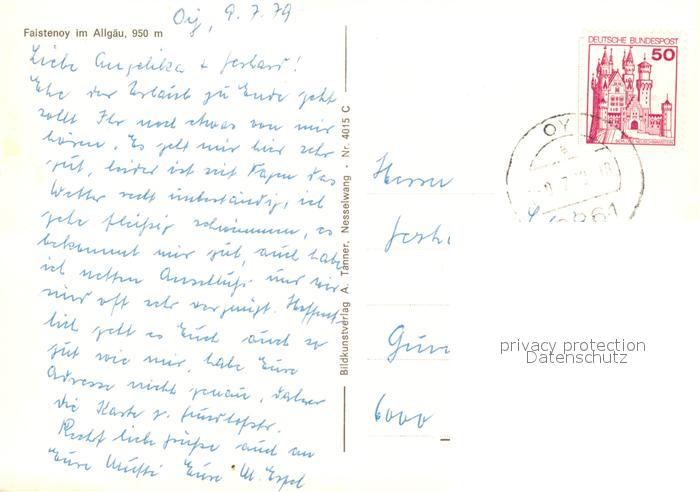 Oy, 9.7.79
Faistenoy im Allgäu, 950 m
Liebe Angelika + Gerhard!
Ehe der Urlaub zu Ende geht
sollt Ihr noch etwas von mir
hören. Es geht mir hier sehr
gut, leider ist seit Tagen das
Wetter recht unbeständig, ich
gehe fleißig schwimmen, es
bekommt mir gut, auch habe
ich netten Anschluß und wir
sind oft sehr vergnügt. Hoffent-
lich geht es Euch auch so
gut wie mir, habe Eure
Adresse nicht genau, daher
die Karte z.
Recht liebe Grüße auch an
Eure Mutti Eure M.
Bildkunstverlag A. Tanner, Nesselwang · Nr. 4015 C
DEUTSCHE BUNDESPOST
50
OY
8961
Herrn
Gerh
6000
privacy protection
Datenschutz